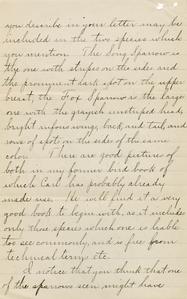 you describe in your letter may be
included in the two species which
you mention. The Song Sparrow is
the one with stripes on the sides and
the prominent dark spot on the upper
breast, the Fox Sparrow is the large
one with the grayish unstriped head,
bright rufous wings, back, and tail, and
rows of spots on the sides of the same
color. There are good pictures of
both in my former bird book of
which Carl has probably already
made use. He will find it a very
good book to begin with, as it includes
only those species which one is liable
to see commonly, and is free from
technical terms etc.
I notice that you think that one
of the sparrows seen might have